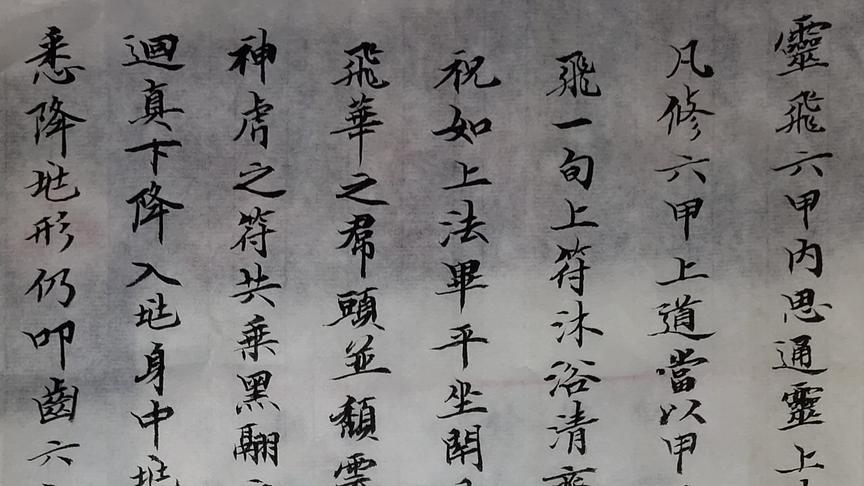 靈飛六甲內思通靈上
凡修六甲上道當以甲
飛一旬上符沐浴清齋
祝如上法畢平坐閉
飛華之帬頭並頹雲
神虎之符共乘黑翮
迴真下降入𡉵身中𡉵
悉降𡉵形仍叩齒六